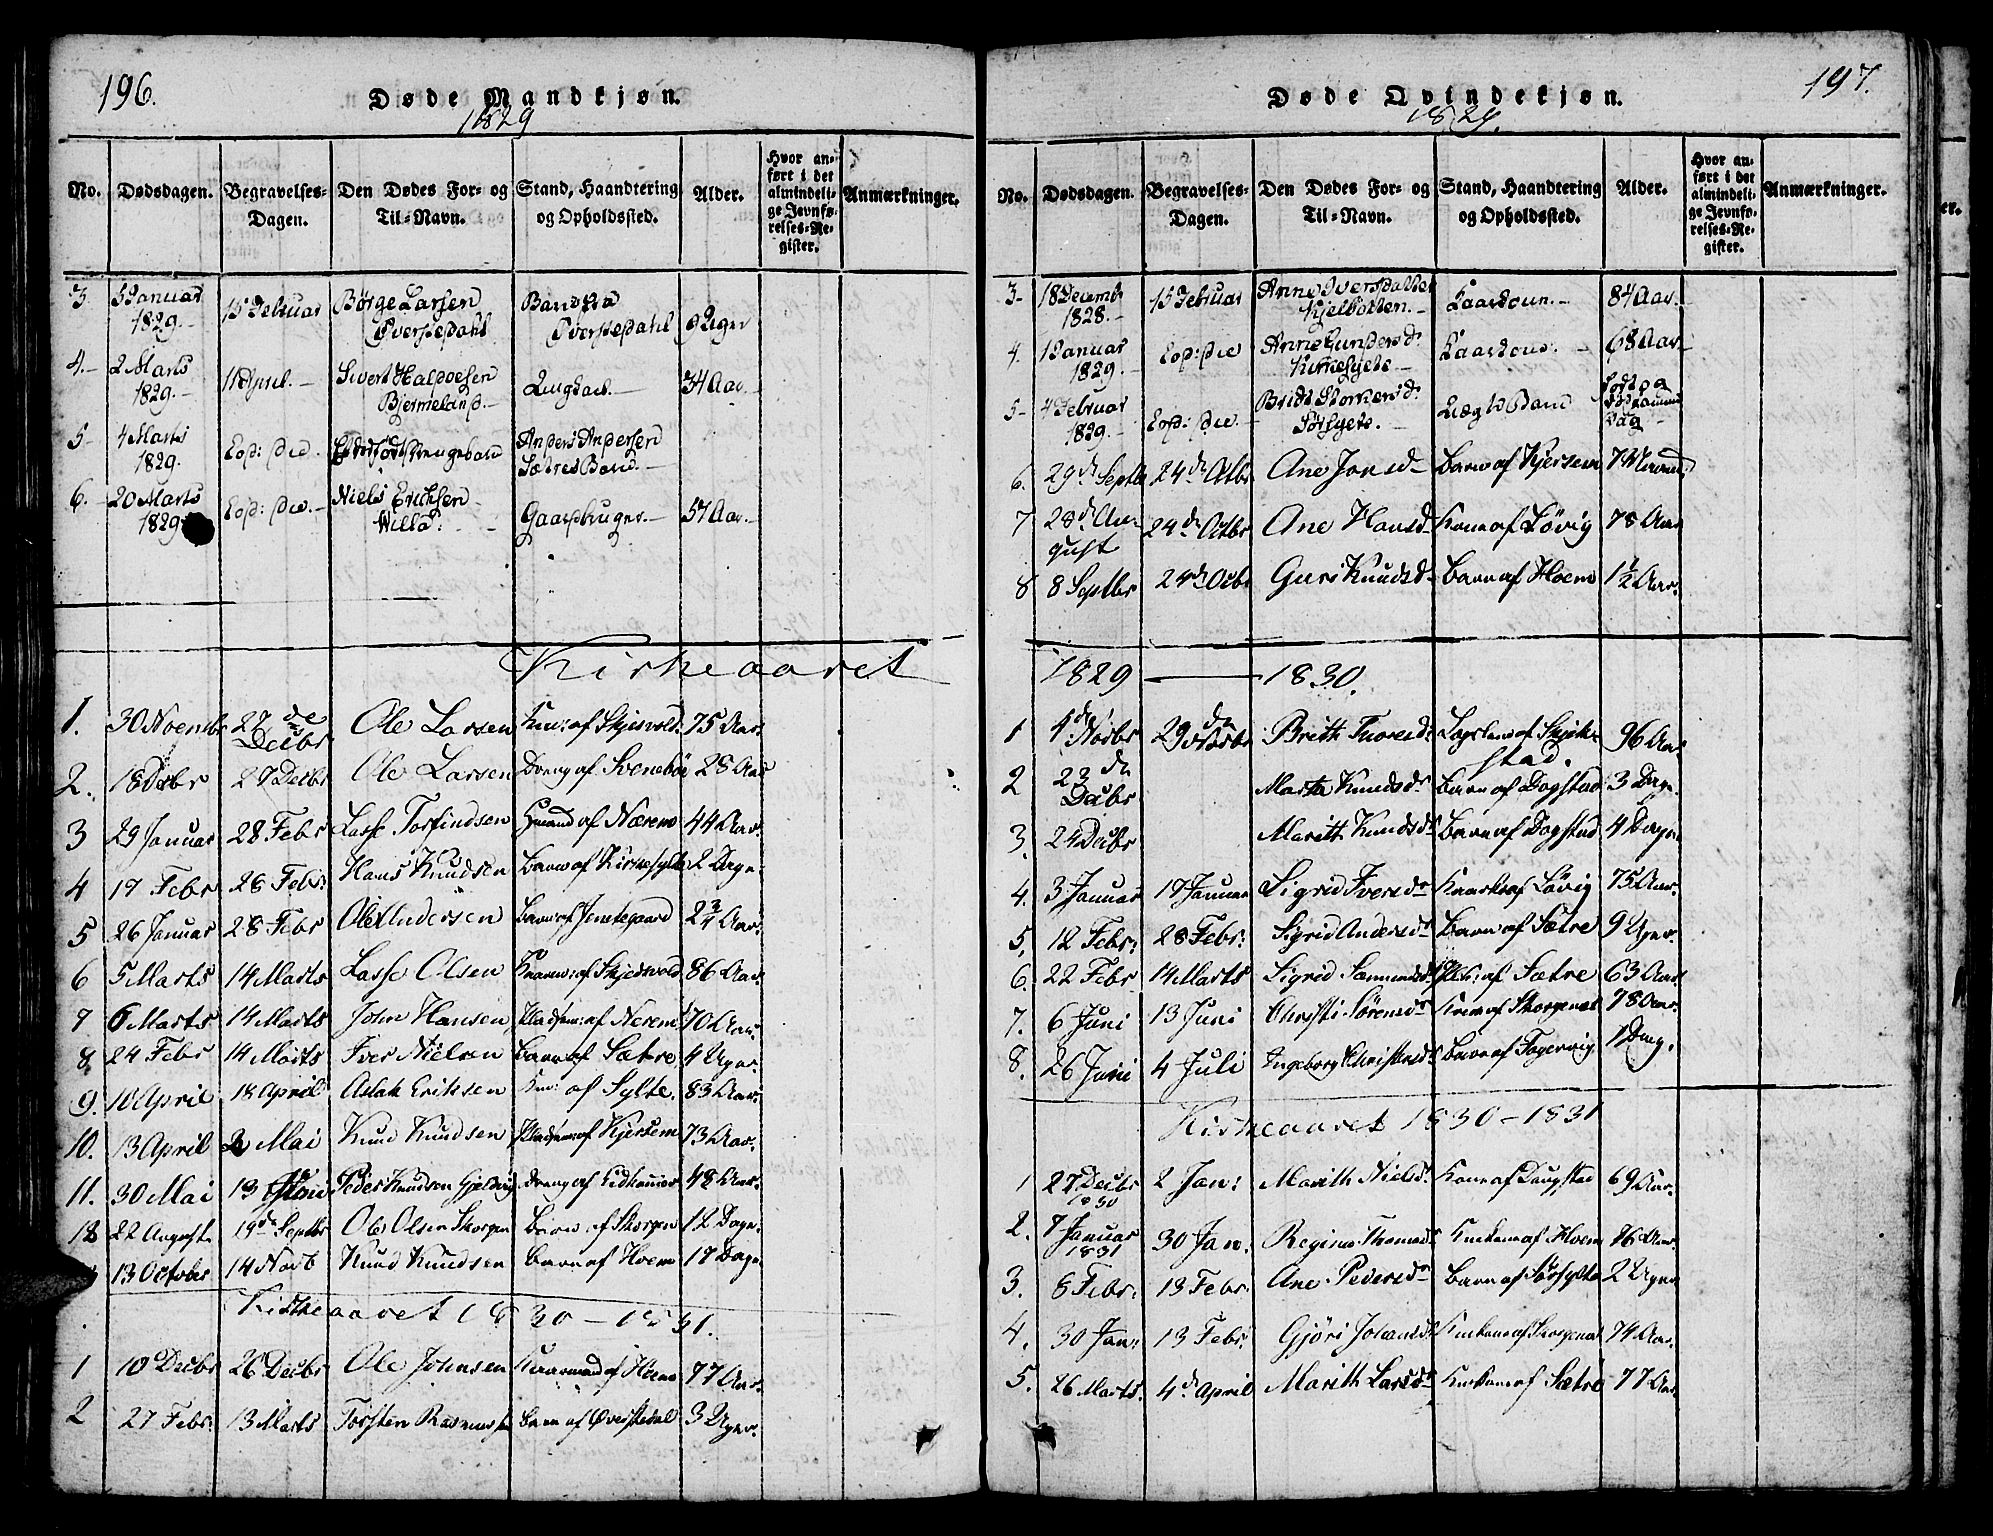 196.
Døde Mandkjøn.
1829
No.
Dødsdagen.
Begravelses-Dagen.
Den Dødes For- og Til-Navn.
Stand, Haandtering og Opholdssted.
Alder.
Hvor anført i det almindelige Jevnførelses-Register.
Anmærkninger.
3. 5 Januar 1829.- 15 Februar Børge Larsen Øverstedahl Øverstedahl 9 Uger
4.- 2 Marts 1829.- 11 April.- Sivert Bjermeland.- 34 Aar.-
5- 4 Marts 1829. Eod: die. Anders Andersen Sætres Barn.-
6.- 20 Marts 1829 Eod: die.- Niels Ericksen Villa. Gaardbruger.- 57 Aar.-
Kirkeaaret
1. 30 Novembr 27 de Decbr Ole Larsen af Skjesvold. 75 Aar.
2. 18 Decbr 27 Decbr Ole Larsen Dreng af Svenebøe 28 Aar
3 29 Januar 28 Febr Lasse Torfindsen af Nærem 44 Aar.
4 17 Febr 28 Febr: Hans Knudsen Barn af Kirkesylte 2 Dage.
5 26 Januar 28 Febr Ole Andersen Barn af 2 3/4 Aar.
6 5 Marts 14 Marts Lasse Olsen af Skjesvold 86 Aar
7 6 Marts 14 Marts John Hansen af Nerem 70 Aar.
8 24 Febr 14 Marts Iver Nielsen Barn af Sætre 4 Uger.
9. 10 April 18 April Aslak Eriksen af Sylte. 83 Aar.
10. 13 April 2 Mai Knud Knudsen af Kjersem 73 Aar.
11. 30 Mai 13 Peder Knudsen Gjelvig Dreng af 48 Aar.
12 22 August 19de Septbr Ole Olsen Skorgen Barn af Skorgen 12 Dage.
13 October 14 Novb Knud Knudsen Barn af Hoem 17 Dage
Kirkeaaret 1830 - 1831.
1 10 Decbr 26 Decbr Ole Johnsen af Hoem 77 Aar.
2 27 Febr: 13 Marts Torsten Rasmussen Barn af Øverstedal 3 Uger.
197.
Døde Qvindekjøn.
1829.
No.
Dødsdagen.
Begravelses-Dagen.
Den Dødes For- og Til-Navn.
Stand, Haandtering og Opholdssted.
Alder.
Hvor anført i det almindelige Jevnførelses-Register.
Anmærkninger.
3- 18 Decembr 1828.- 15 Februar Anne Iversdatter Kjelbotten.- 84 Aar.-
4. 1 Januar 1829.- Eod: die Anne Gundersd. Kirkesylte- 68 Aar-
5- 4 Februar 1829.- Eod: die.- Sørsylte.- Lægds Barn
6. 29 de Septbr 24 de Octbr Ane Jonsd- Barn af Kjersem 7 Maaned
7 28 de August 24 de Octbr Ane Hansd- Kone af Løvig 78 Aar
8 8 Septbr 24 de Octbr Guri Knudsd- Barn af Hoem 1 1/2 Aar.
1829 — 1830.
1 4de Novbr 29 de Novbr Brith Tworsd: 96 Aar
2 23 de Decbr Marta Knudsdr Barn af Dogstad 3 Dage.
3. 24 Decbr Marith Knudsdr Barn af Dogstad 4 Dage
4. 3 Januar 17 Januar Sigrid Iversdr af Løvig 75 Aar.
5, 12 Febr: 28 Febr: Sigrid Andersdr Barn af Sætre 9 Uger.
6. 22 Febr 14 Marts Sigrid af Sætre 63 Aar
7. 6 Juni 13 Juni Christi Sørensdr af Skorgenes 78 Aar.
8. 26 Juni 4 Juli Ingeborg Christensdr Barn af Fagervig 1 Dag.
Kirkeaaret 1830 - 1831
1 27 Decbr 1830 2 Jan: Marith Nielsdr Kone af Daugstad 69 Aar.
2. 7 Januar 1831 30 Jan: Thomasdr af Hoem 76 Aar.
3. 8 Febr: 13 Febr: Ane Pedersdr Barn af Sørsylte 2 Uger
4. 30 Jan: 13 Febr: Gjøri Johansdr af Skorgenes 74 Aar.
5. 26 Marts. 4 de April Marith Larsdr af Sætre 77 Aar.